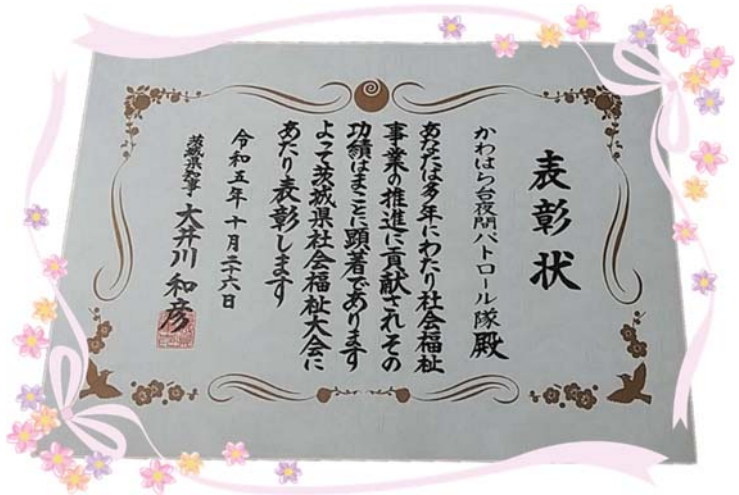 表彰状
かわはら台夜間パトロール隊 殿
あなたは多年にわたり社会福祉
事業の推進に貢献されその
功績はまことに顕著であります
よって茨城県社会福祉大会に
あたり表彰します
令和五年十月二十六日
茨城県知事 大井川 和彦